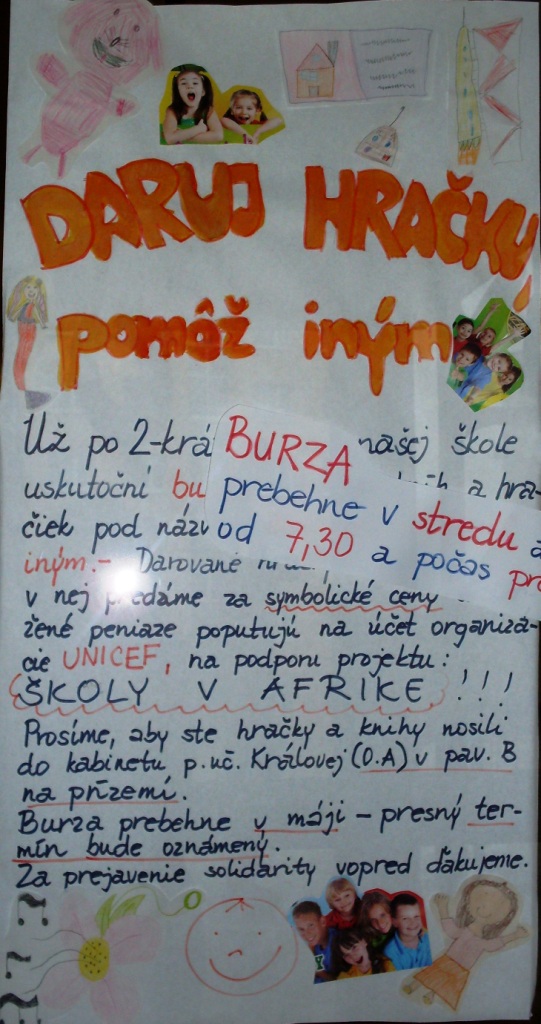 DARUJ HRAČKU
pomôž iným
Už po 2-krá našej škole
uskutoční bu a hra-
čiek pod názv
iným.- Darované
BURZA
prebehne v stredu
od 7,30 a počas
v nej predáme za symbolické ceny
žené peniaze poputujú na účet organizá-
cie UNICEF, na podporu projektu:
ŠKOLY V AFRIKE !!!
Prosíme, aby ste hračky a knihy nosili
do kabinetu p.uč. Královej (O.A) v pav. B
na přízemí.
Burza prebehne v máji - presný ter-
mín bude oznámený.
Za prejavenie solidarity vopred ďakujeme.